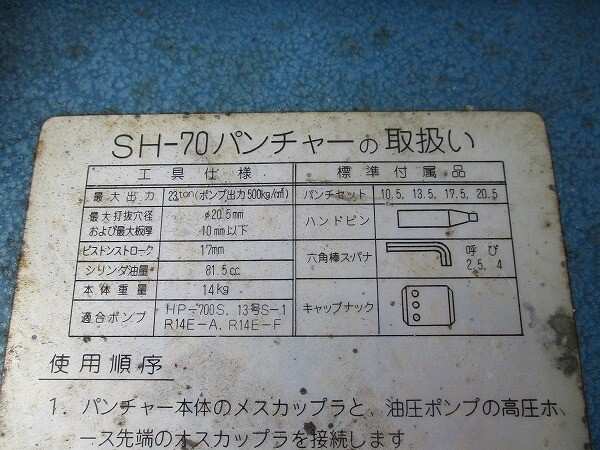 SH-70パンチャーの取扱い
工具仕様
最大出力 23ton(ポンプ出力500kg/c㎡)
最大打抜穴径 および最大板厚 φ20.5mm 10mm以下
ピストンストローク 17mm
シリンダ油量 81.5cc
本体重量 14kg
適合ポンプ HP-700S, 13号S-1 R14E-A, R14E-F
標準付属品
パンチセット 10.5, 13.5, 17.5, 20.5
ハンドピン
六角棒スパナ 呼び 2.5, 4
キャップナック
使用順序
1. パンチャー本体のメスカップラと、油圧ポンプの高圧ホ、
ース先端のオスカップラを接続します